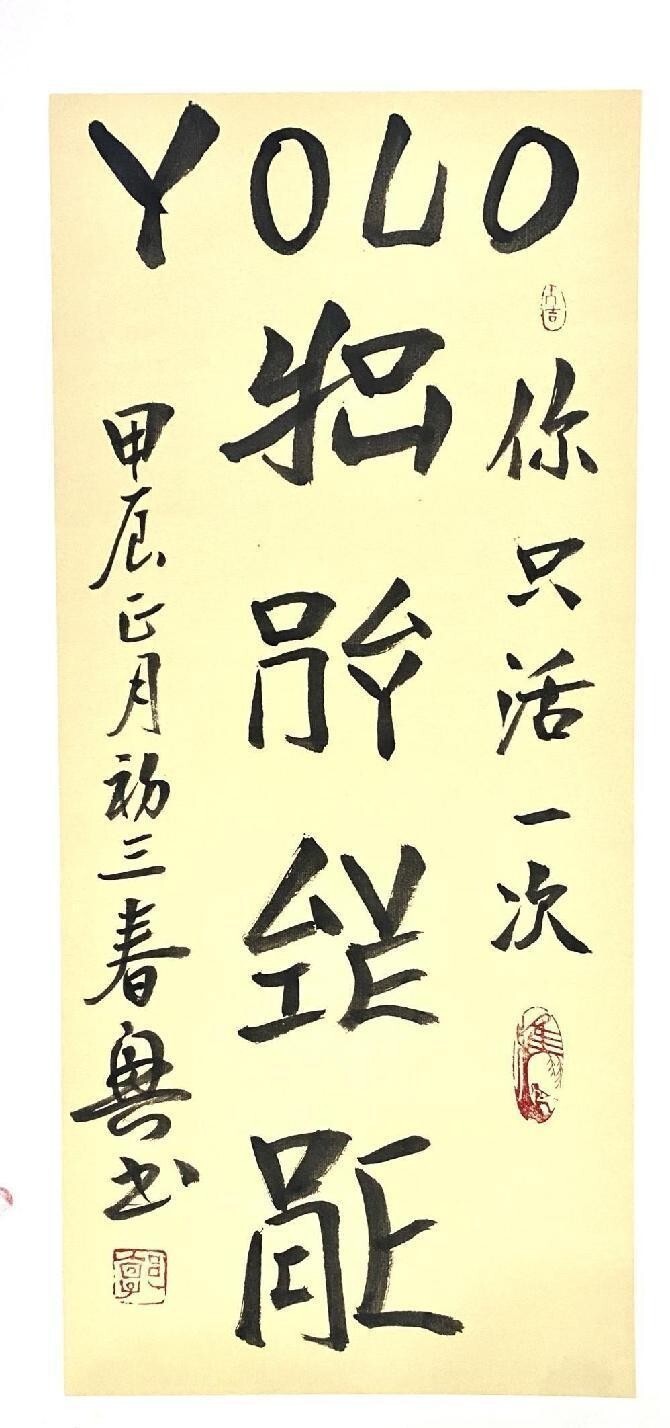 YOLO
大吉
你只活一次
YOU
ONLY
LIVE
ONCE
甲辰正月初三春興书
郭